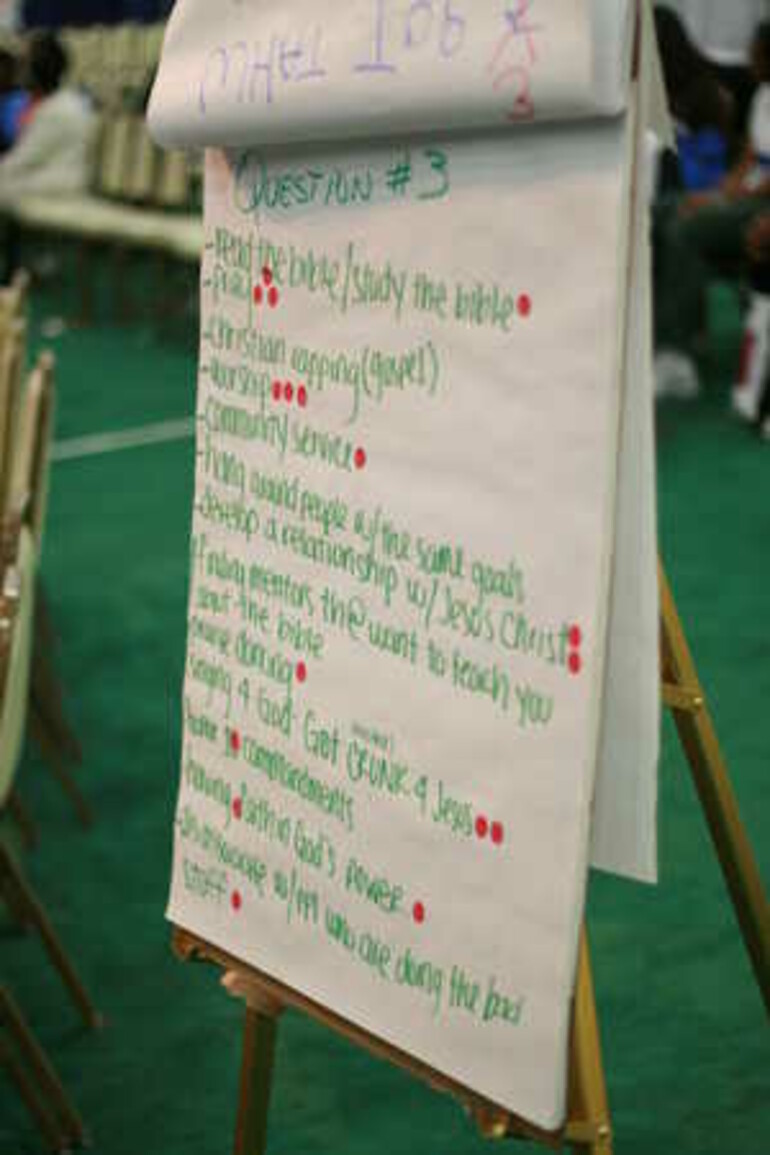 WHAT I
3
QUESTION #3
-read the bible/study the bible
-pray
-christian rapping (gospel)
-worship
-community service
-hang around people w/ the same goals
-develop a relationship w/ Jesus Christ
finding mentors th@ want to teach you
bout the bible
praise dancing
singing 4 God Get CRUNK 4 Jesus
10 commandments
having faith in God's power
w/ ppl who are doing the bad
stuff